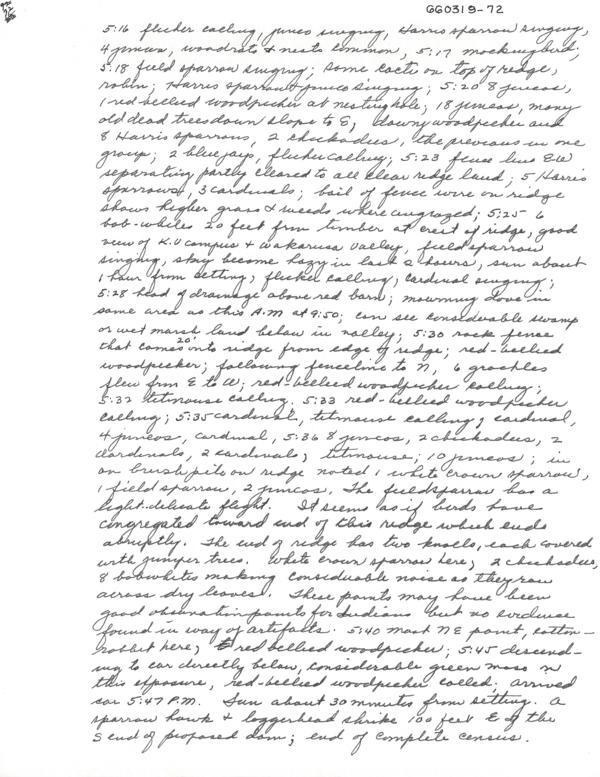 GG0319-72
5:16 flicker calling, junco singing, Harris sparrow singing,
4 juncos, woodrats & nests common, 5:17 mockingbird;
5:18 field sparrow singing; some cacti on top of ridge,
robin; Harris sparrow & junco singing; 5:20 8 juncos,
1 red-bellied woodpecker at nesting hole; 18 juncos, many
old dead trees down slope to E; downy woodpecker and
8 Harris sparrows, 2 chickadees, the previous in one
group; 2 blue jays, flicker calling; 5:23 fence line E-W
separating partly cleared to all clear ridge land; 5 Harris
sparrows, 3 cardinals; bail of fence wire on ridge
shows higher grass & weeds where ungrazed; 5:25 6
bob-whites 20 feet from timber at crest of ridge, good
view of K.U campus & Wakarusa Valley, field sparrow
singing, sky become hazy in last 2 hours, sun about
1 hour from setting; flicker calling, cardinal singing;
5:28 head of drainage above red barn; mourning dove in
same area as this A.M at 9:50; can see considerable swamp
or wet marsh land below in valley; 5:30 rock fence
that comes 20' onto ridge from edge of ridge; red-bellied
woodpecker; following fenceline to N, 6 grackles
flew from E to W; red-bellied woodpecker calling;
5:32 titmouse calling. 5:33 red-bellied woodpecker
calling; 5:35 cardinal, titmouse calling, cardinal,
4 juncos, cardinal, 5:36 8 juncos, 2 chickadees, 2
cardinals, 2 cardinals; titmouse; 10 juncos; in
on brush pile on ridge noted 1 white crown sparrow,
1 field sparrow, 2 juncos. The field sparrow has a
light-delicate flight. It seems as if birds have
congregated toward end of this ridge which ends
abruptly. The end of ridge has two knolls, each covered
with juniper trees. White crown sparrow here; 2 chickadees,
8 bobwhites making considerable noise as they ran
across dry leaves. These points may have been
good observation points for Indians but no evidence
found in way of artifacts. 5:40 most NE point, cotton-
rabbit here; red bellied woodpecker; 5:45 descend-
ing to car directly below, considerable green moss on
this exposure, red-bellied woodpecker called; arrived
car 5:47 P.M. Sun about 30 minutes from setting. A
sparrow hawk & loggerhead shrike 100 feet E of the
S end of proposed dam; end of complete census.